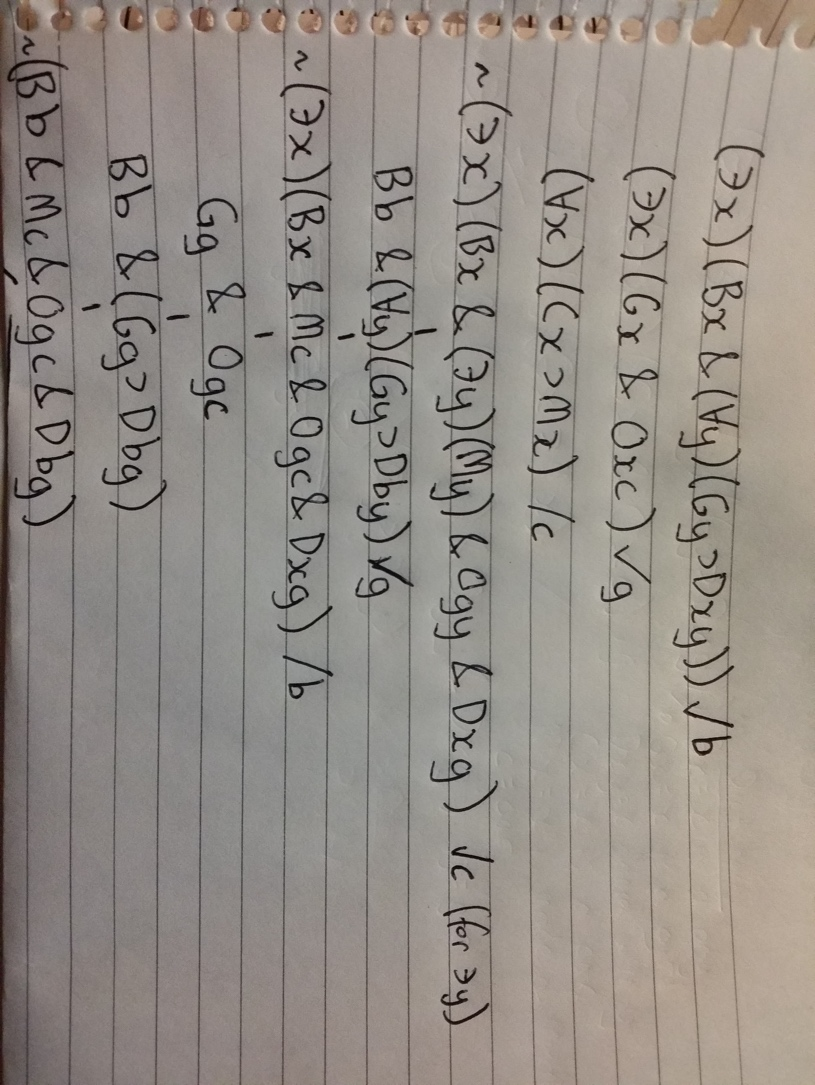 (∃x)(Bx & (∀y)(Gy⊃Dxy)) √b
(∃x)(Gx & Oxc) √g
(∀x)(Cx⊃Mx) /c
~(∃x)(Bx & (∃y)(My) & Ogy & Dxg) √c (for ∃y)
Bb & (∀y)(Gy⊃Dby) √g
~(∃x)(Bx & Mc & Ogc & Dxg) /b
Gg & Ogc
Bb & (Gg⊃Dbg)
~(Bb & Mc & Ogc & Dbg)